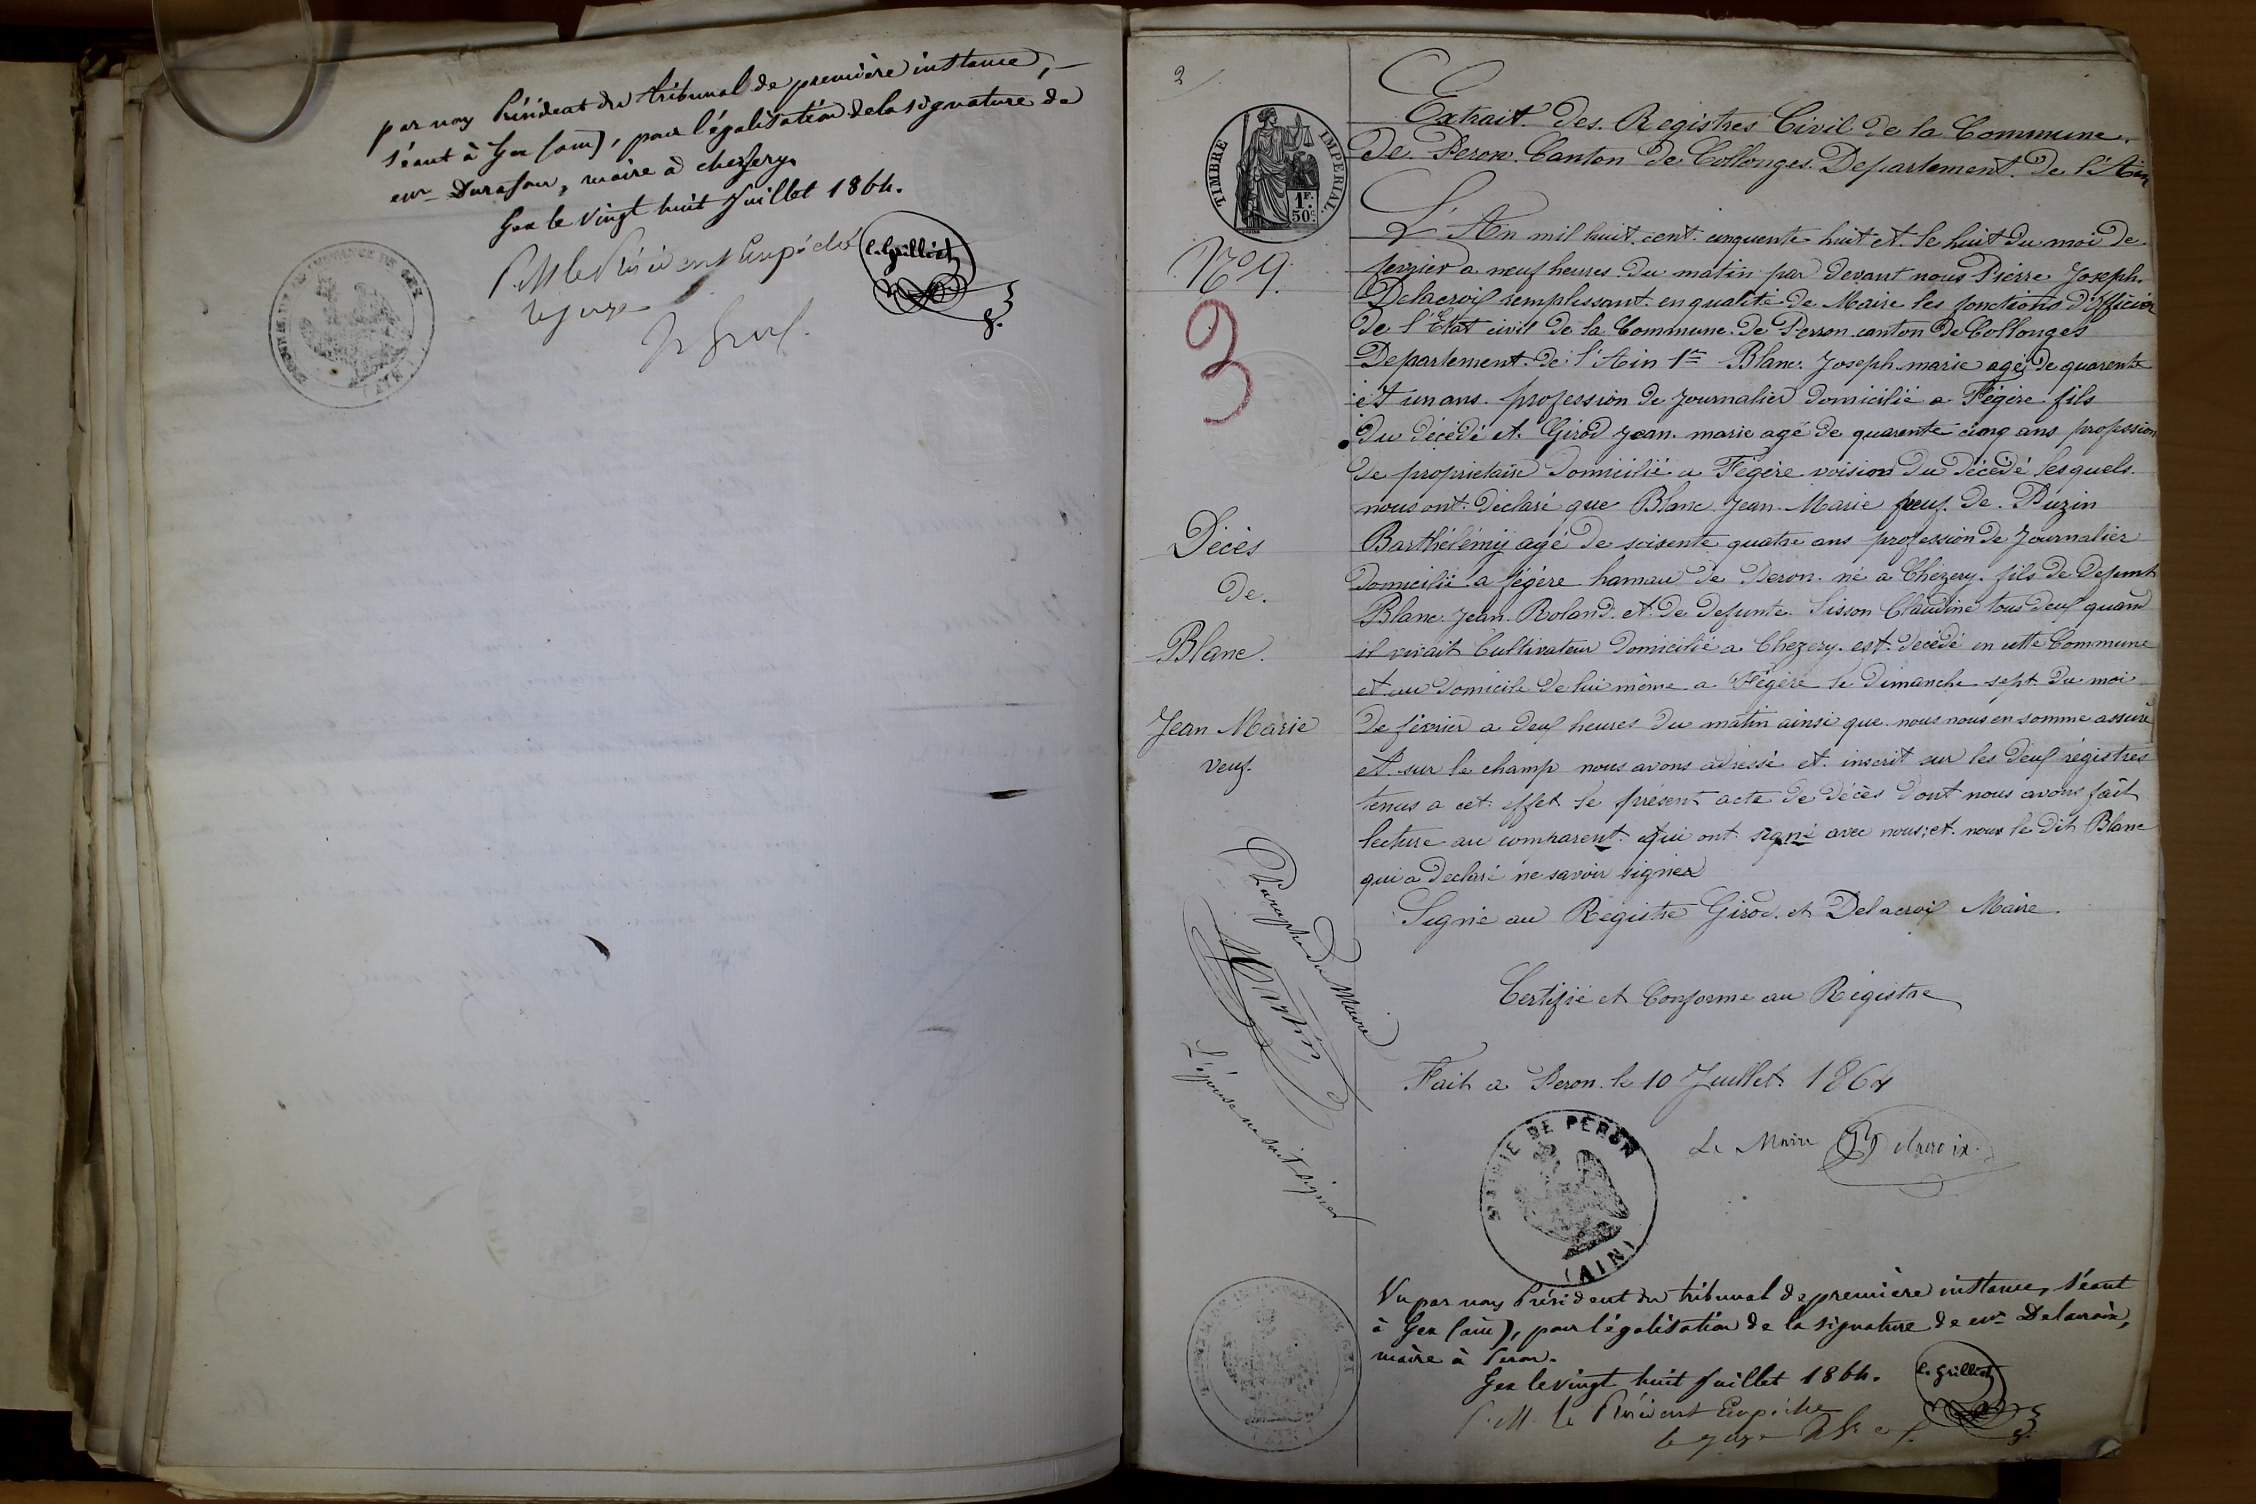 par nous Président du tribunal de première instance,
séant à Gex (ain), pour légalisation de la signature de
mr Durafour, maire à chezery.
Gex le vingt huit Juillet 1864.
P. M le Président Empêché
le juge
C. Grilliet
2
TIMBRE IMPERIAL
1F.
50c.
Extrait des Registres Civil de la Commune
de Peron Canton de Collonges Departement de l'Ain
L'An mil huit cent cinquente huit et le huit du moi de
fevrier a neuf heures du matin par devant nous Pierre Joseph
Delacroix remplessant en qualité de Maire les fonctions d'officier
de l'Etat civil de la Commune de Perron canton de Collonges
Departement de l'Ain 1er Blanc Joseph marie agé de quarente
et un ans profession de Journalier domicilié a Fégère fils
du décédé et Girod Jean marie agé de quarente cinq ans profession
de proprietaire domicilié a Fégère voision du décédé lesquels
nous ont déclaré que Blanc Jean Marie veuf de Puzin
Barthélémy agé de soisente quatre ans profession de Journalier
domicilié a fégère hamau de Peron né a Chézery fils de defunt
Blanc Jean Roland et de defunte Sisson Claudine tous deux quand
il vivait Cultivateur domicilié a Chezery est decédé en cette Commune
et au domicile de lui même a Fégère le dimanche sept du moi
de février a deux heures du matin ainsi que nous nous en somme assuré
et sur le champ nous avons adressé et inscrit sur les deux régistres
tenus a cet effet le présent acte de décès dont nous avons fait
lecture au comparent qui ont signé avec nous et non le dit Blanc
qui a declaré ne savoir signer
Signé au Régistre Girod et Delacroix Maire
Certifié et Conforme au Régistre
Fait a Peron le 10 Juillet 1864
Le Maire Delacroix
MAIRIE DE PERON
(AIN)
No 9
3
Décès
de
Blanc
Jean Marie
veuf
Paraphe du Maire
L'épouse ne sait signer
Vu par nous Président du tribunal de première instance, séant
à Gex (ain), pour légalisation de la signature de mr Delacroix,
maire à Peron.
Gex le vingt huit Juillet 1864.
P. M le Président Empêché
le juge
C. Grilliet